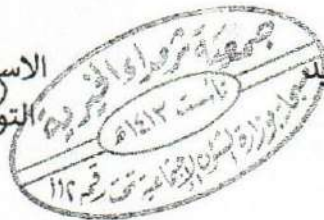 الاس
التو
جمعية ثرمداء الخيرية
تأسست ١٤١٣هـ
مسجلة بوزارة الشئون الإجتماعية تحت رقم ١١٢